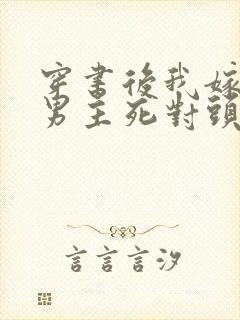 穿書後我嫁
男主死對頭
言言言汐